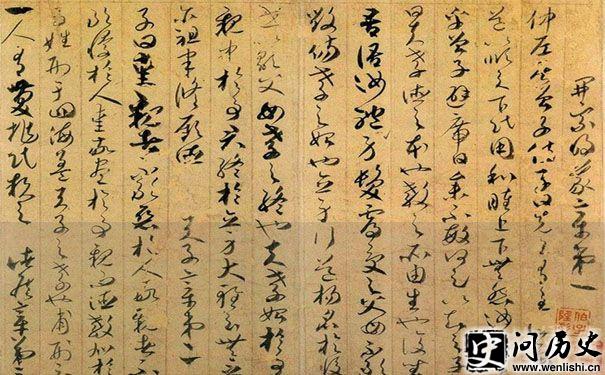 開宗明義章第一
仲尼居曾子侍子曰先王有至
道以順天下民用和睦上下無怨汝
乎曾子避席曰參不敏何足以知之子
曰夫孝德之本也教之所由生也復坐
吾語汝體身髮膚受之父母不敢
毀傷孝之始也立身行道揚名於後
世以顯父母孝之終也夫孝始於事
親中於事君終於立身大雅云無念
尔祖聿脩厥德 天子章第二
子曰愛親者不敢惡於人敬親者不
敢慢於人愛敬盡於事親而德教加於
百姓刑于四海蓋天子之孝也甫刑云
一人有慶兆民賴之 諸侯章第三
问历史
www.wenlishi.cn